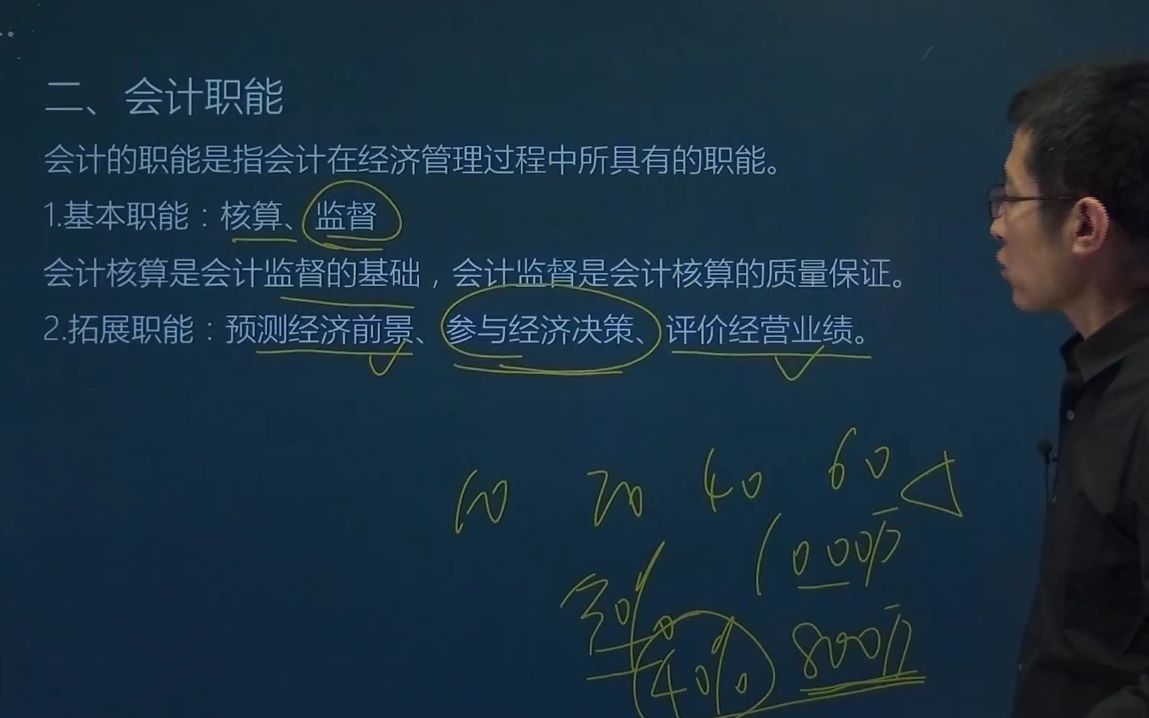 二、会计职能
会计的职能是指会计在经济管理过程中所具有的职能。
1.基本职能：核算、监督
会计核算是会计监督的基础，会计监督是会计核算的质量保证。
2.拓展职能：预测经济前景、参与经济决策、评价经营业绩。
10 20 40 60
1000万
30%
40% 800万